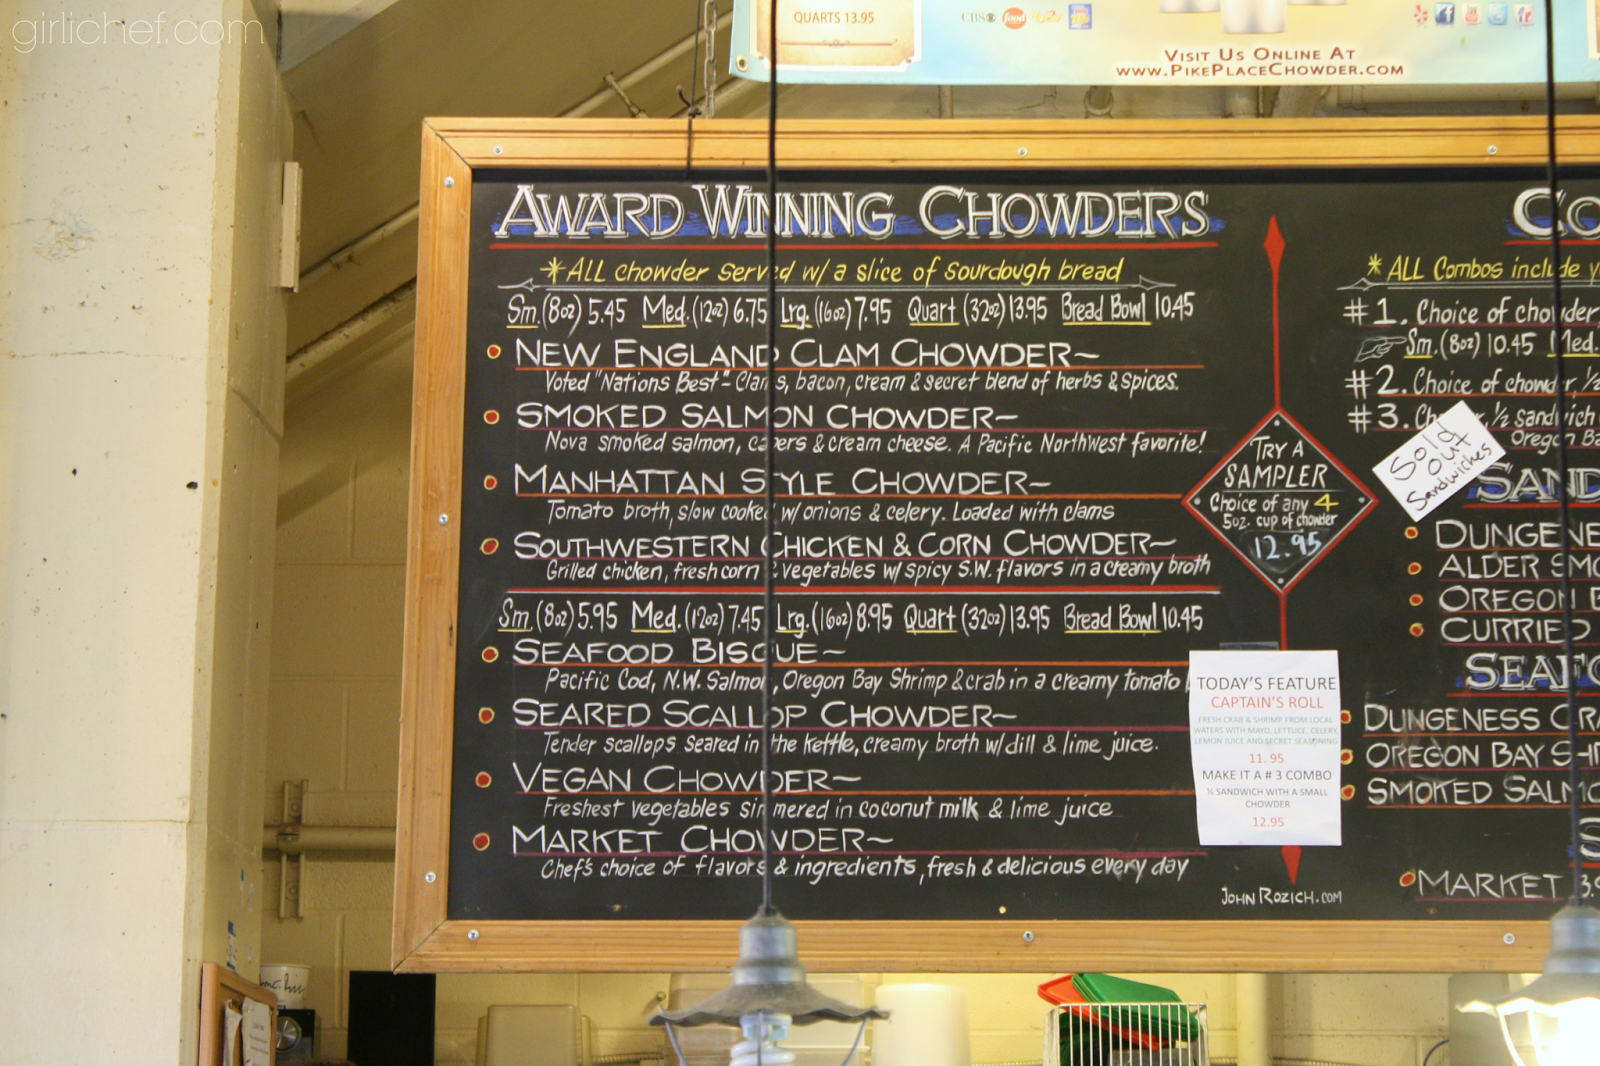 girlichef.com
QUARTS 13.95
CBS food
VISIT US ONLINE AT
WWW.PIKEPLACECHOWDER.COM
AWARD WINNING CHOWDERS
*ALL chowder served w/ a slice of sourdough bread
Sm. (8oz) 5.45 Med. (12oz) 6.75 Lrg. (16oz) 7.95 Quart (32oz) 13.95 Bread Bowl 10.45
NEW ENGLAND CLAM CHOWDER~
Voted "Nations Best" - Clams, bacon, cream & secret blend of herbs & spices.
SMOKED SALMON CHOWDER~
Nova smoked salmon, capers & cream cheese. A Pacific Northwest favorite!
MANHATTAN STYLE CHOWDER~
Tomato broth, slow cooked w/ onions & celery. Loaded with clams
SOUTHWESTERN CHICKEN & CORN CHOWDER~
Grilled chicken, fresh corn & vegetables w/ spicy S.W. flavors in a creamy broth
Sm. (8oz) 5.95 Med. (12oz) 7.45 Lrg. (16oz) 8.95 Quart (32oz) 13.95 Bread Bowl 10.45
SEAFOOD BISQUE~
Pacific Cod, N.W. Salmon, Oregon Bay Shrimp & crab in a creamy tomato
SEARED SCALLOP CHOWDER~
Tender scallops seared in the kettle, creamy broth w/ dill & lime juice.
VEGAN CHOWDER~
Freshest vegetables simmered in coconut milk & lime juice
MARKET CHOWDER~
Chef's choice of flavors & ingredients, fresh & delicious every day
TRY A
SAMPLER
Choice of any 4
5oz. cup of chowder
12.95
TODAY'S FEATURE
CAPTAIN'S ROLL
FRESH CRAB & SHRIMP FROM LOCAL
WATERS WITH MAYO, LETTUCE, CELERY,
LEMON JUICE AND SECRET SEASONING
11.95
MAKE IT A # 3 COMBO
½ SANDWICH WITH A SMALL
CHOWDER
12.95
JOHN ROZICH.COM
CO
*ALL Combos include y
#1. Choice of chowder,
Sm. (8oz) 10.45 Med.
#2. Choice of chowder, ½
#3. Chowder, ½ sandwich
Oregon Ba
Sold
out
Sandwiches
SAND
DUNGENE
ALDER SMO
OREGON B
CURRIED
SEAFO
DUNGENESS CRA
OREGON BAY SHR
SMOKED SALMO
S
MARKET 3.9